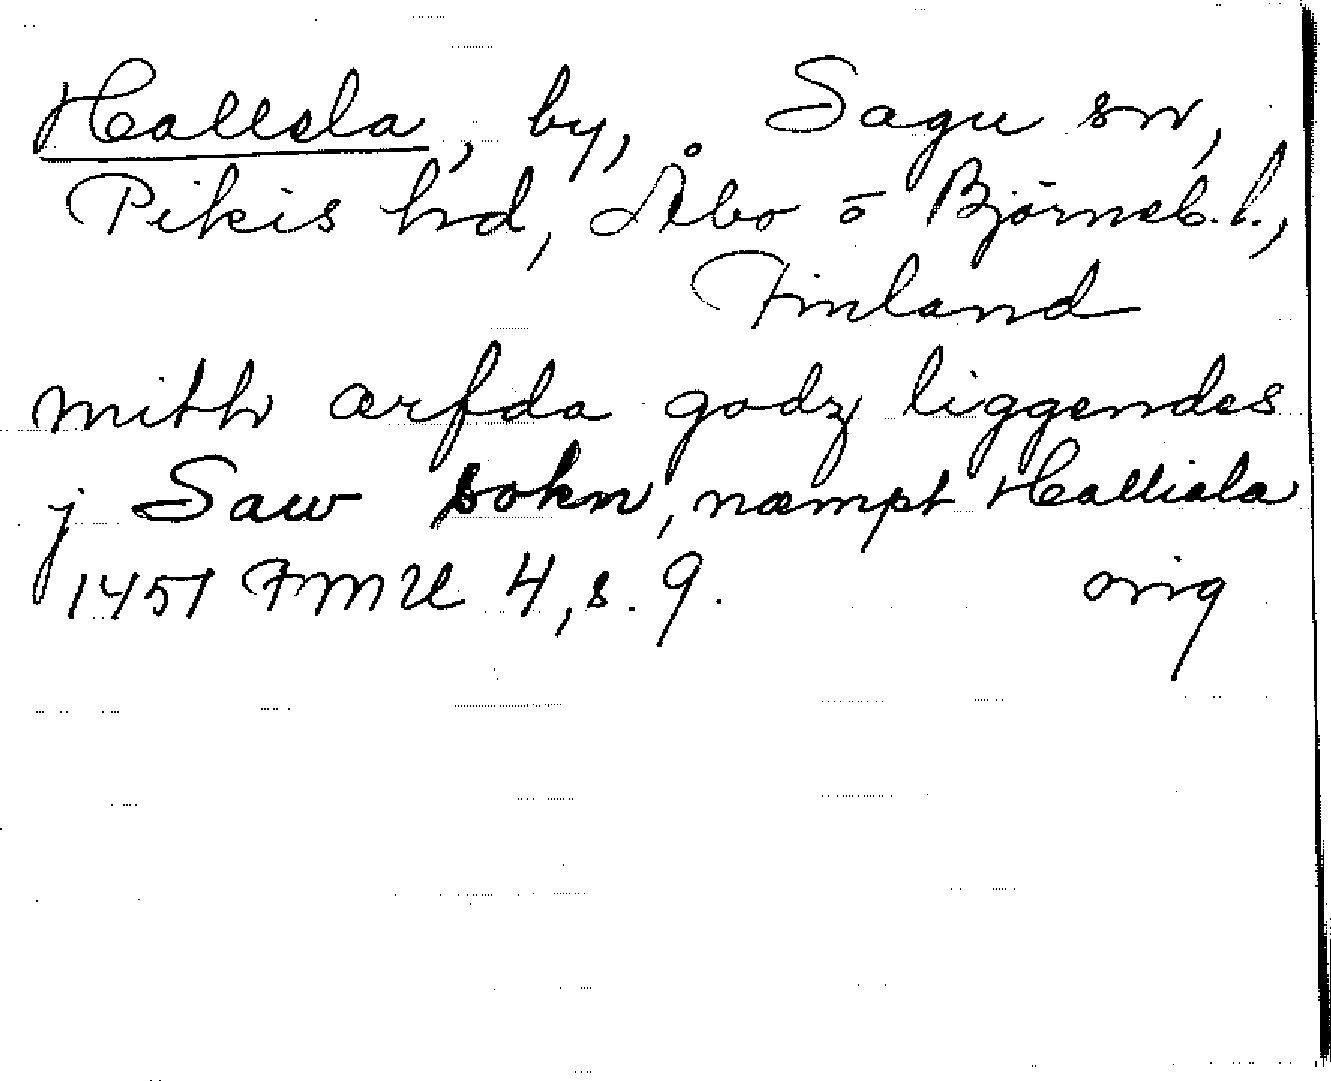 Hallela, by, Sagu sn,
Pikis hd, Åbo o Björneb. l.,
Finland
mith ærfda godz liggendes
j Saw sokn, næmpt Halliala
1451 FMU 4, s. 9. orig